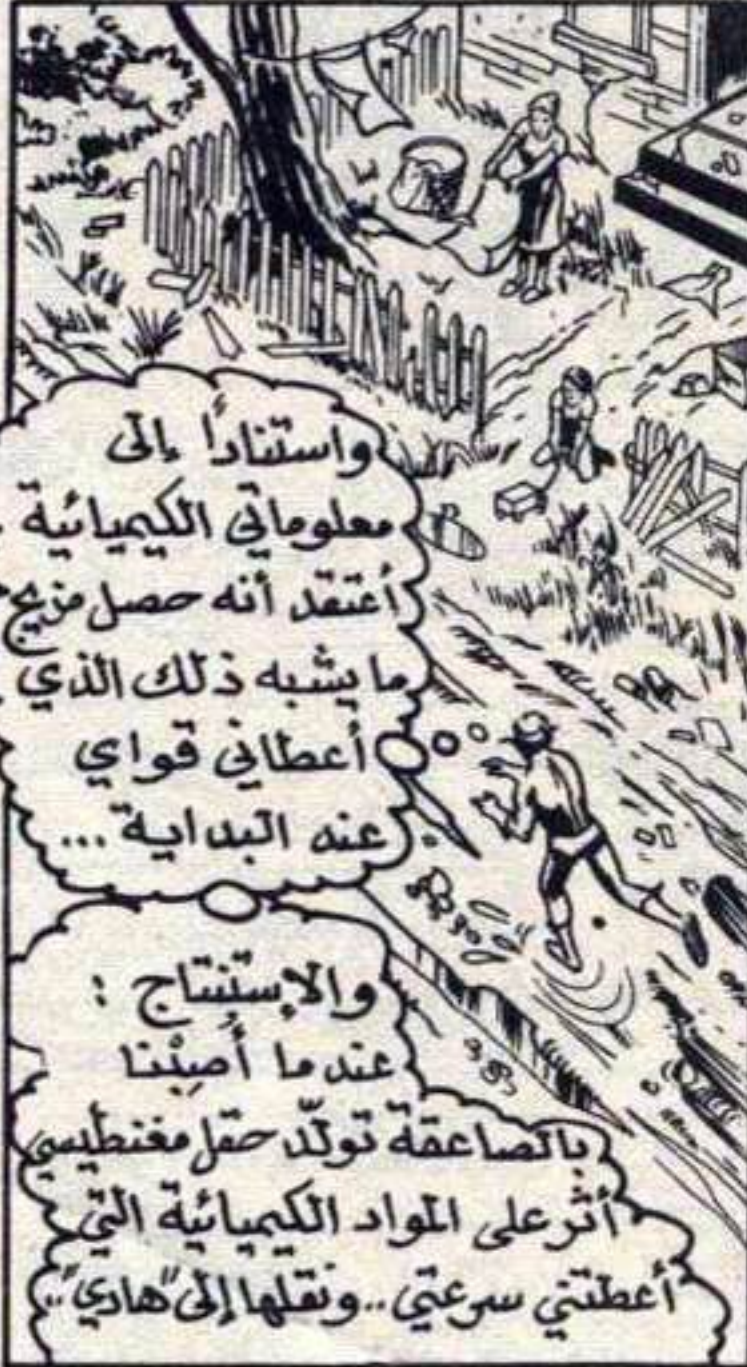 واستنادًا إلى
معلوماتي الكيميائية
أعتقد أنه حصل مزيج
ما يشبه ذلك الذي
أعطاني قواي
عند البداية ...
والإستنتاج :
عندما أُصِبْنا
بالصاعقة تولّد حقل مغنطيسي
أثّر على المواد الكيميائية التي
أعطتني سرعتي .. ونقلها إلى "هادي" ..